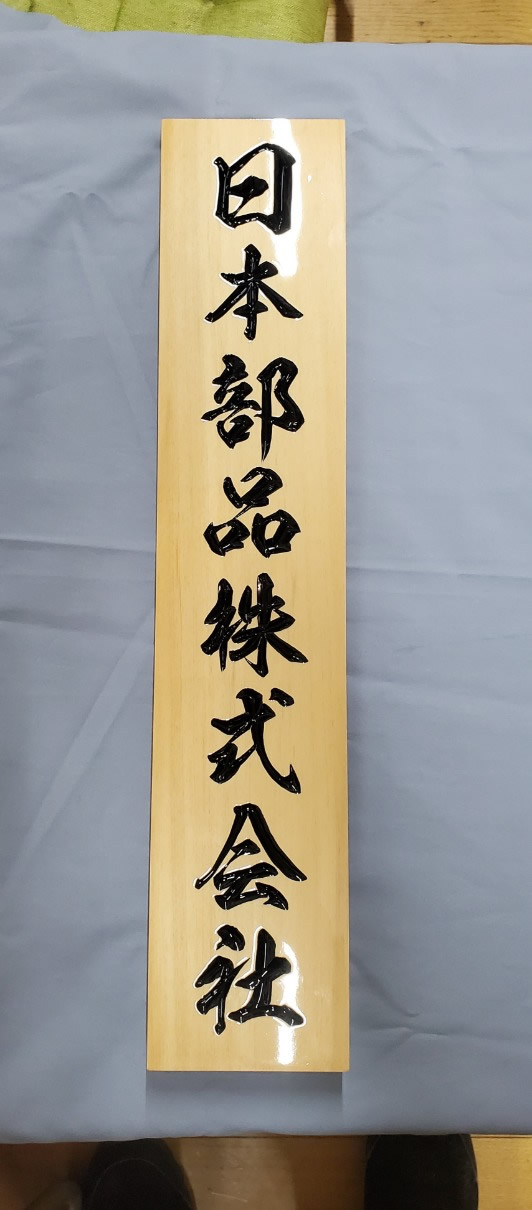 日本部品株式会社